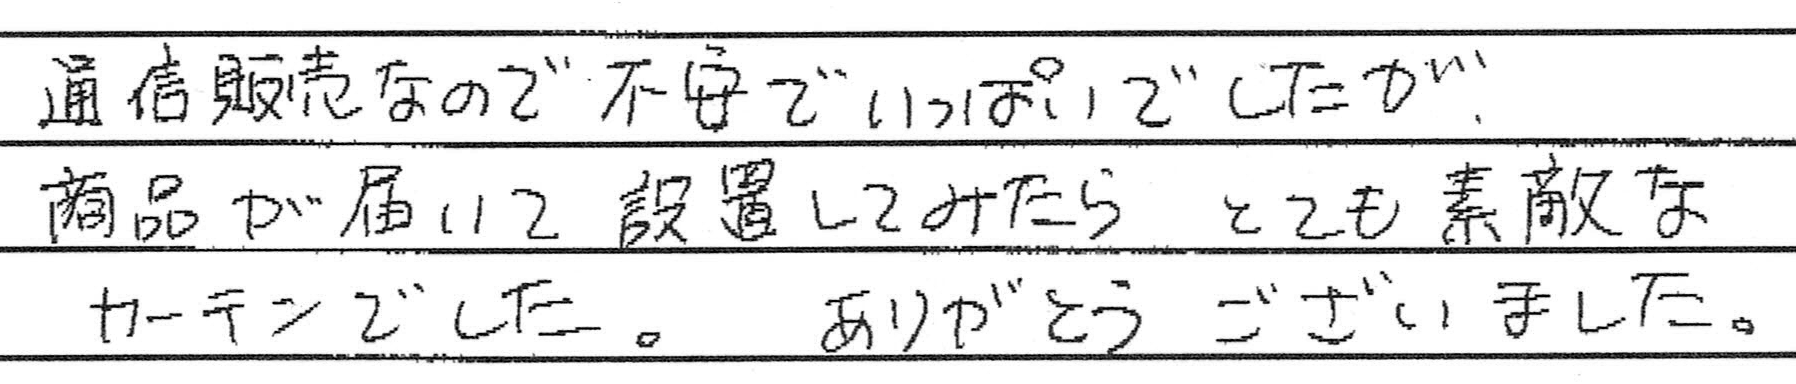 通信販売なので不安でいっぱいでしたが、
商品が届いて設置してみたら とても素敵な
カーテンでした。 ありがとうございました。